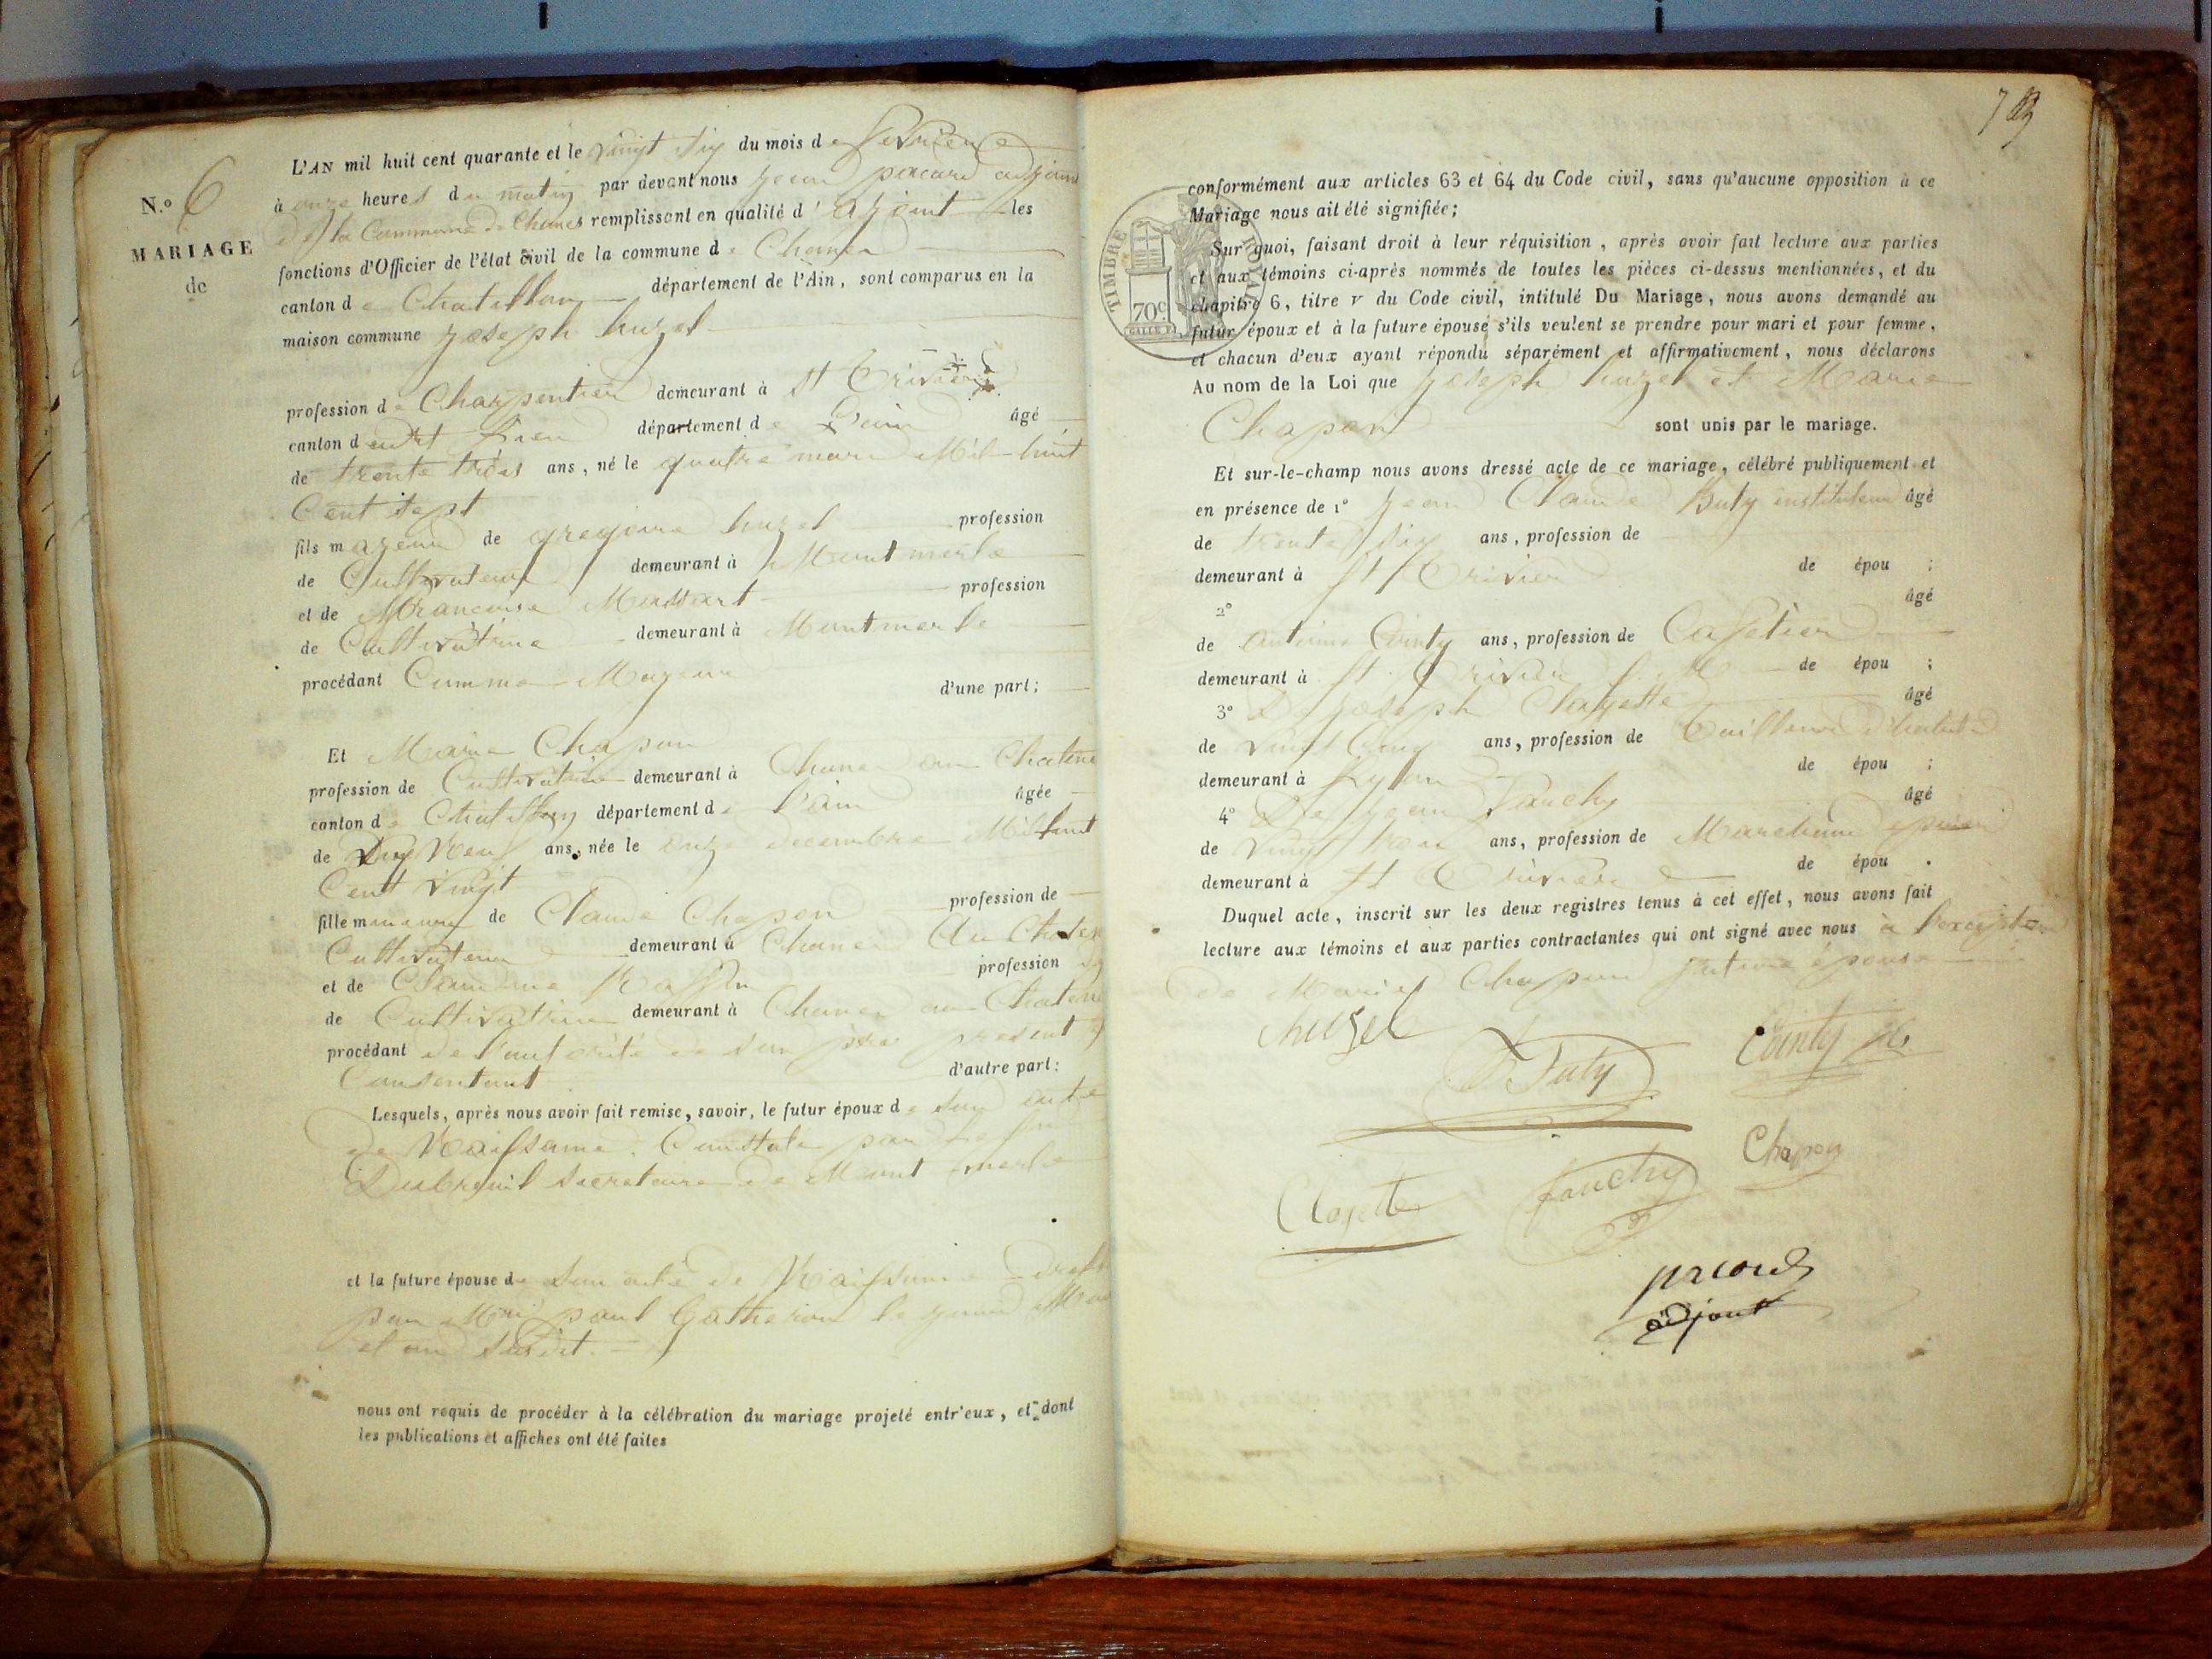 N.º 6
MARIAGE
de
L'AN mil huit cent quarante et le vingt six du mois de fevrier
à onze heures du matin par devant nous jean pacard adjoint
de la Commune de Chanes remplissant en qualité d'ajoint les
fonctions d'Officier de l'état civil de la commune de
canton de Chatillon département de l'Ain, sont comparus en la
maison commune joseph huzel
profession de Charpentier demeurant à St Trivier
canton dudit lieu département de l'ain âgé
de trente trois ans, né le quatre mars Mil huit
Cent sept
fils majeur de gregoire huzel profession
de Cultivateur demeurant à Montmerle
et de francoise profession
de Cultivatrice demeurant à Montmerle
procédant Comme Majeur d'une part;
Et Marie Chapon
profession de Cultivatrice demeurant à
canton de Chatillon département de l'ain âgée
de Dix Neuf ans, née le onze decembre Mil huit
Cent vingt
fille mineure de Claude Chapon profession de
Cultivateur demeurant à
et de Claudine profession
de Cultivatrice demeurant à
procédant de l'autorité de son père present
Consentant d'autre part:
Lesquels, après nous avoir fait remise, savoir, le futur époux de son acte
de Naissance. Constate par le
Dubreuil Secretaire de Mont merle
et la future épouse de son acte de Naissance
par paul Gatheron le
et an susdit.
nous ont requis de procéder à la célébration du mariage projeté entr'eux, et dont
les publications et affiches ont été faites
TIMBRE ROYAL
70c
conformément aux articles 63 et 64 du Code civil, sans qu'aucune opposition à ce
Mariage nous ait été signifiée;
Sur quoi, faisant droit à leur réquisition, après avoir fait lecture aux parties
et aux témoins ci-après nommés de toutes les pièces ci-dessus mentionnées, et du
chapitre 6, titre v du Code civil, intitulé Du Mariage, nous avons demandé au
futur époux et à la future épouse s'ils veulent se prendre pour mari et pour femme,
et chacun d'eux ayant répondu séparément et affirmativement, nous déclarons
Au nom de la Loi que joseph huzel et Marie
Chapon sont unis par le mariage.
Et sur-le-champ nous avons dressé acte de ce mariage, célébré publiquement et
en présence de 1º jean Claude Buty instituteur âgé
de trente six ans, profession de
demeurant à St Trivier de épou ;
2º âgé
de antoine Cointy ans, profession de Cafetier
demeurant à St Trivier de épou ;
3º De joseph Clayette âgé
de vingt Cinq ans, profession de Tailleur d'habits
demeurant à Lyon de épou ;
4º De jean Fauchy âgé
de vingt trois ans, profession de Marchand epicier
demeurant à St Trivier de épou .
Duquel acte, inscrit sur les deux registres tenus à cet effet, nous avons fait
lecture aux témoins et aux parties contractantes qui ont signé avec nous à l'exception
de Marie Chapon future épouse
huzel
Buty
Cointy
Clayette
fauchy
Chapon
pacard
adjoint